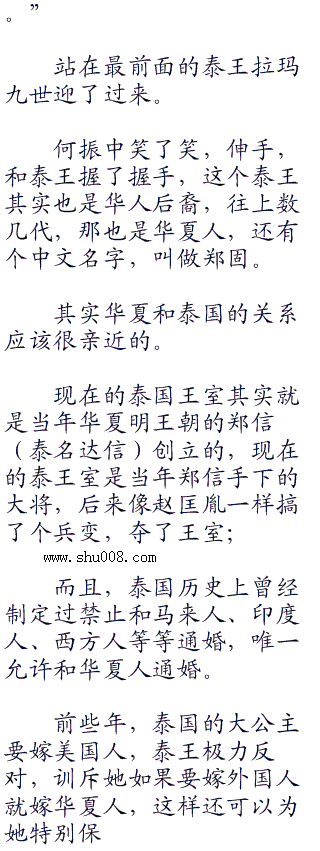 。”
站在最前面的泰王拉玛
九世迎了过来。
何振中笑了笑，伸手，
和泰王握了握手，这个泰王
其实也是华人后裔，往上数
几代，那也是华夏人，还有
个中文名字，叫做郑固。
其实华夏和泰国的关系
应该很亲近的。
现在的泰国王室其实就
是当年华夏明王朝的郑信
（泰名达信）创立的，现在
的泰王室是当年郑信手下的
大将，后来像赵匡胤一样搞
了个兵变，夺了王室；
www.shu008.com
而且，泰国历史上曾经
制定过禁止和马来人、印度
人、西方人等等通婚，唯一
允许和华夏人通婚。
前些年，泰国的大公主
要嫁美国人，泰王极力反
对，训斥她如果要嫁外国人
就嫁华夏人，这样还可以为
她特别保